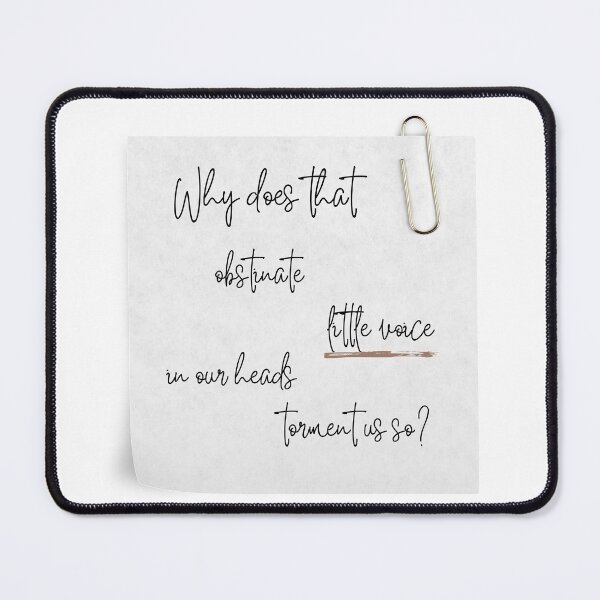 Why does that
obstinate
little voice
in our heads
torment us so?